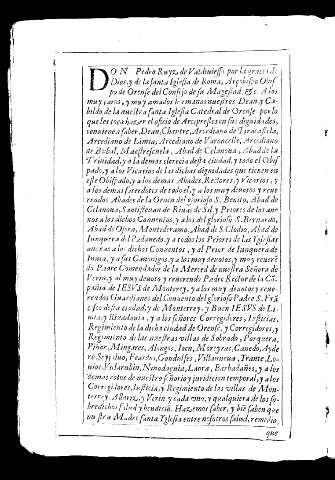 DON Pedro Ruyz de Valdiuiesso por la gracia de
Dios, y de la santa Iglesia de Roma, Arçobispo Obis
po de Orense del Consejo de su Magestad, &c. A los
muy caros, y muy amados hermanos nuestros Dean, y Ca
bildo de la nuestra santa Iglesia Catedral de Orense por lo
que les toca hazer el oficio de Arciprestes en sus dignidades,
conuiene a saber, Dean, Chantre, Arcediano de
Arcediano de Limia, Arcediano de Varoncelle, Arcediano
de Bubal, Maestrescuela, Abad de Celanoua, Abad de la
Trinidad, y a la demas clerecia desta ciudad, y todo el Obis
pado, y a los Vicarios de las dichas dignidades que tienen en
este Obispado, y a los demas Abades, Retores, y Vicarios, y
a los demas sacerdotes de todo el, y a los muy deuotos y reue
rendos Abades de la Orden del glorioso S. Benito, Abad de
Celanoua, Santisteuan de Riuas de Sil, y Priores de los ane
xos a los dichos Conuentos, y a los del glorioso S. Bernardo,
Abad de Osera, Montederramo, Abad de S. Clodio, Abad de
Iunquera d'Espadanedo, y a todos los Priores de las Iglesias
anexas a los dichos Conuentos, y al Prior de Iunquera de
Ambia, y a sus Canonigos, y a los muy deuotos, y muy reueren
do Padre Comendador de la Merced de nuestra Señora de
Verin, y al muy deuoto y reuerendo Padre Rector de la Cõ
pañia de IESVS de Monterrey, y a los muy deuotos y reue
rendos Guardianes del Conuento del glorioso Padre S. Frã
cisco desta ciudad, y de Monterrey, y Buen IESVS de Li
mia, y Ribadauia, y a los señores Corregidores, Iusticias,
Regimiento de la dicha ciudad de Orense, y Corregidores, y
Regimiento de las nuestras villas de Sobrado, Porquera,
Piñor, Mingares, Canedo,
Feardos, Gondulfes, Villamena, Trante,
Niñodaguia, Laora, Barbadanes, y a los
demas cotos de nuestro señorio y jurisdicion temporal, y a los
Corregidores, Iusticia, y Regimiento de las villas de Mon-
terrey, Allariz, y Verin, y cada vno, y qualquiera de los so-
bredichos salud y bendicio. Hazemos saber, y biẽ saben que
nuestra Madre santa Iglesia entre nuestros salud, remedio,
que